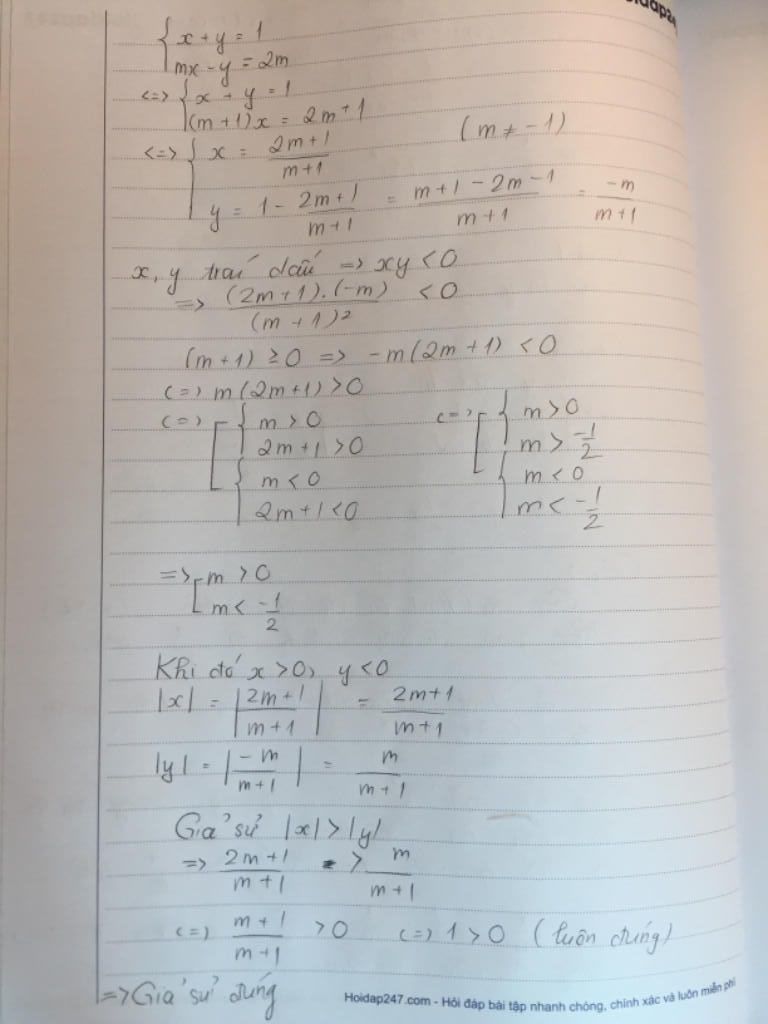 x + y = 1
mx - y = 2m
<=> x + y = 1
(m+1)x = 2m+1
<=> x = \frac{2m+1}{m+1} (m ≠ -1)
y = 1 - \frac{2m+1}{m+1} = \frac{m+1-2m-1}{m+1} = \frac{-m}{m+1}
x, y trái dấu => xy < 0
=> \frac{(2m+1).(-m)}{(m+1)^2} < 0
(m+1) ≥ 0 => -m(2m+1) < 0
<=> m(2m+1) > 0
<=> m > 0 <=> m > 0
2m+1 > 0 m > \frac{-1}{2}
m < 0 m < 0
2m+1 < 0 m < \frac{-1}{2}
=> m > 0
m < \frac{-1}{2}
Khi đó x > 0, y < 0
|x| = |\frac{2m+1}{m+1}| = \frac{2m+1}{m+1}
|y| = |\frac{-m}{m+1}| = \frac{m}{m+1}
Giả sử |x| > |y|
=> \frac{2m+1}{m+1} > \frac{m}{m+1}
<=> \frac{m+1}{m+1} > 0 <=> 1 > 0 (luôn đúng)
=> Giả sử đúng
Hoidap247.com - Hỏi đáp bài tập nhanh chóng, chính xác và luôn miễn phí